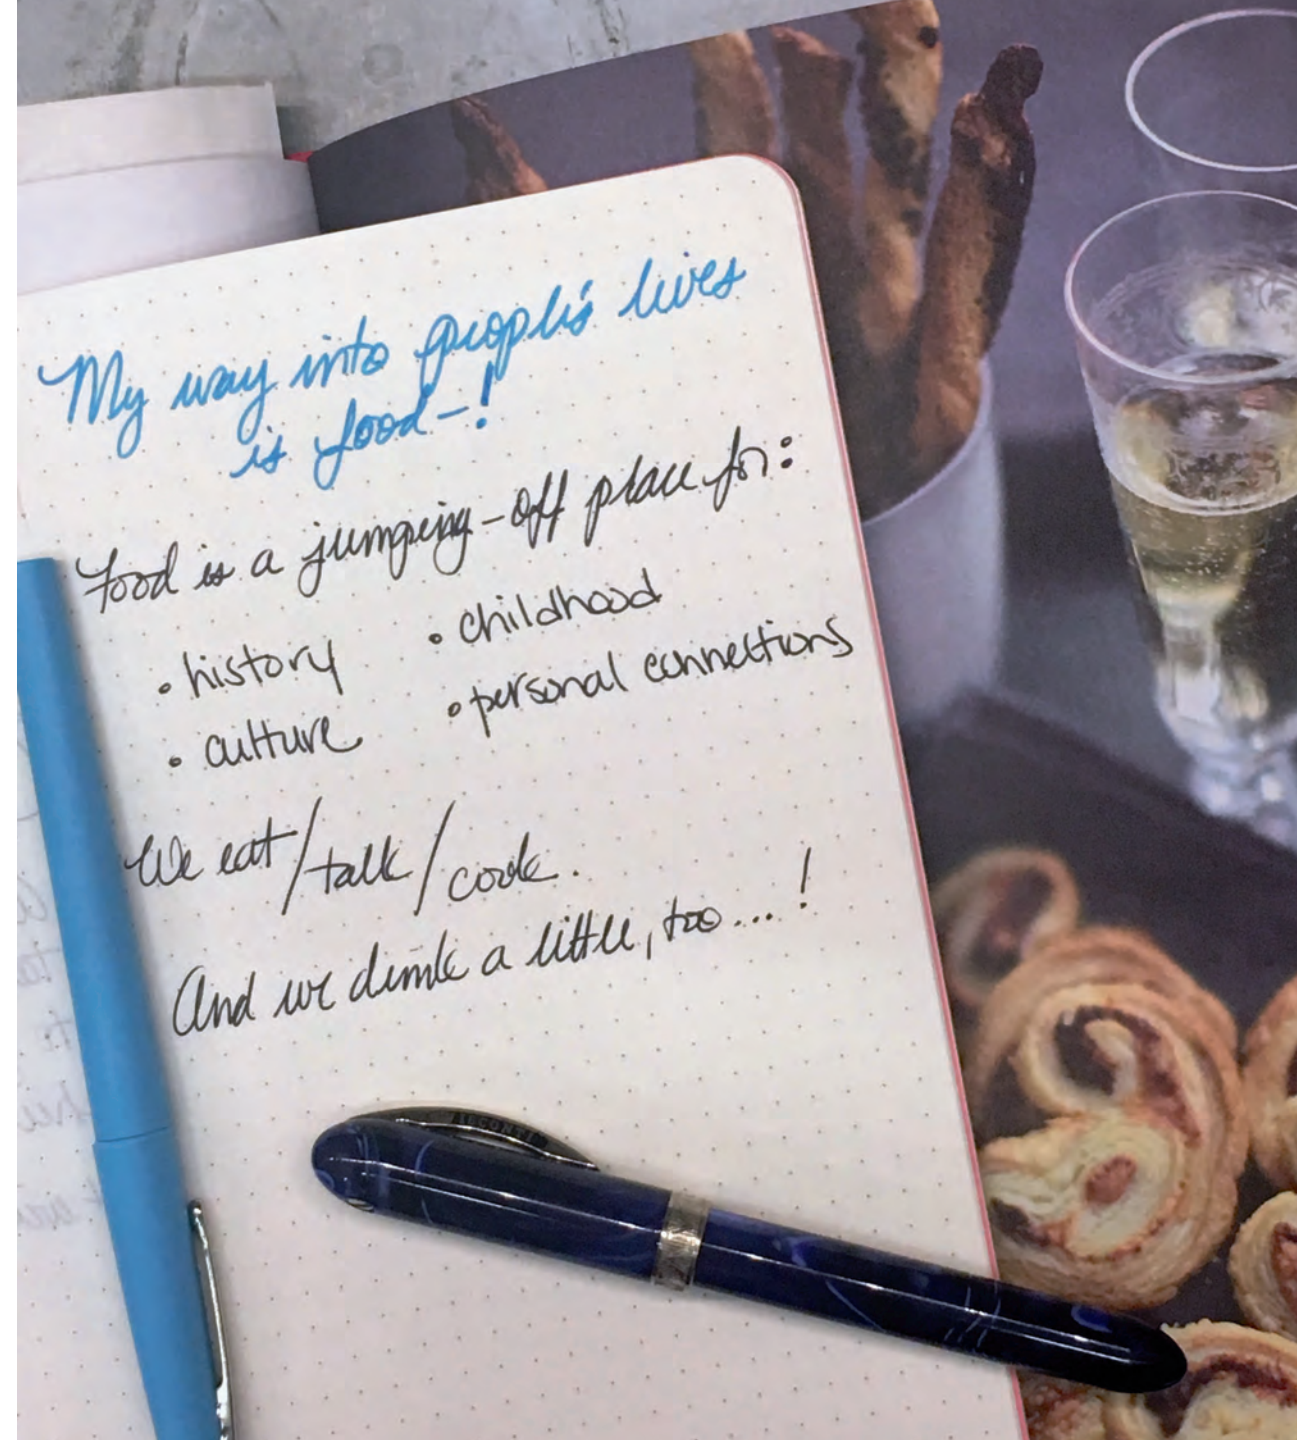 My way into people's lives
is food-!
Food is a jumping-off place for:
• history
• culture
• childhood
• personal connections
We eat/talk/cook.
And we drink a little, too...!